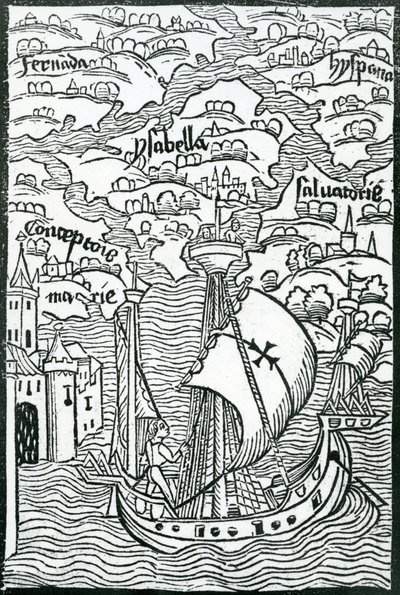 Fernada
hyspana
ysabella
saluatorie
conceptoie
marie